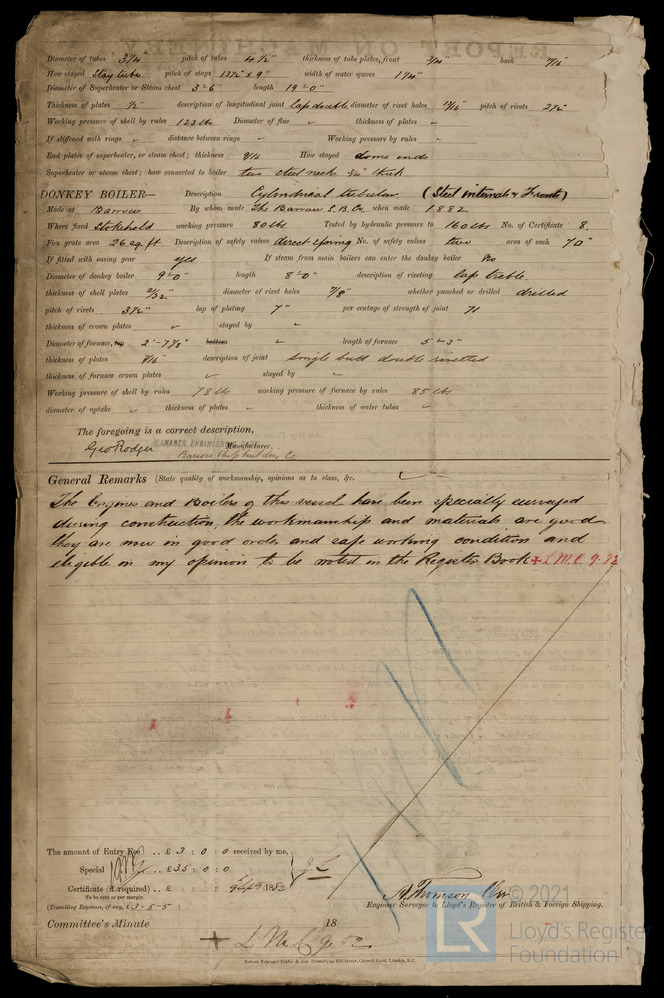 Diameter of tubes 3¼" pitch of tubes 4½" thickness of tube plates, front ¾" back
How stayed Stay tubes pitch of stays 13½" x 9" width of water spaces 1¼"
Diameter of Superheater or Steam chest 3'-6" length 19'-0"
Thickness of plates ½" description of longitudinal joint lap double diameter of rivet holes pitch of rivets
Working pressure of shell by rules 123 lb Diameter of flue thickness of plates
If stiffened with rings distance between rings Working pressure by rules
End plates of superheater, or steam chest; thickness 9/16 How stayed dome ends
Superheater or steam chest; how connected to boiler two steel necks ¾" thick
DONKEY BOILER— Description Cylindrical tubular (Steel internals & Fronts)
Made at Barrow By whom made The Barrow S.B. Co when made 1882
Where fixed Stokehold working pressure 80 lbs Tested by hydraulic pressure to 160 lbs No. of Certificate 8.
Fire grate area 26 sq. ft Description of safety valves direct spring No. of safety valves two area of each 7.0"
If fitted with easing gear yes If steam from main boilers can enter the donkey boiler No
Diameter of donkey boiler 9'-0" length 8'-0" description of riveting lap treble.
thickness of shell plates diameter of rivet holes 7/8" whether punched or drilled drilled
pitch of rivets 3½" lap of plating 7" per centage of strength of joint 71
thickness of crown plates stayed by
Diameter of furnace, top 2'-7½" bottom length of furnace 5'-3"
thickness of plates description of joint single butt double rivetted
thickness of furnace crown plates stayed by
Working pressure of shell by rules 78 lb working pressure of furnace by rules 85 lbs
diameter of uptake thickness of plates thickness of water tubes
The foregoing is a correct description,
Geo Rodger MANAGER, ENGINEER Manufacturer.
Barrow Shipbuilding Co
General Remarks (State quality of workmanship, opinions as to class, &c.
The Engines and Boilers of this vessel have been specially surveyed
during construction, the workmanship and materials are good
they are now in good order and safe working condition and
eligible in my opinion to be noted in the Register Book + L.M.C. 9.82
The amount of Entry Fee .. £ 3 : 0 : 0 received by me,
Special .. £ 35 : 0 : 0
Certificate (if required) .. £ : : 188
To be sent as per margin.
(Travelling Expenses, if any, £3-5-5)
A. Thomson
Engineer Surveyor to Lloyd's Register of British & Foreign Shipping.
Committee's Minute 18
+ L.M.C.
© 2021
LR
Lloyd's Register
Foundation